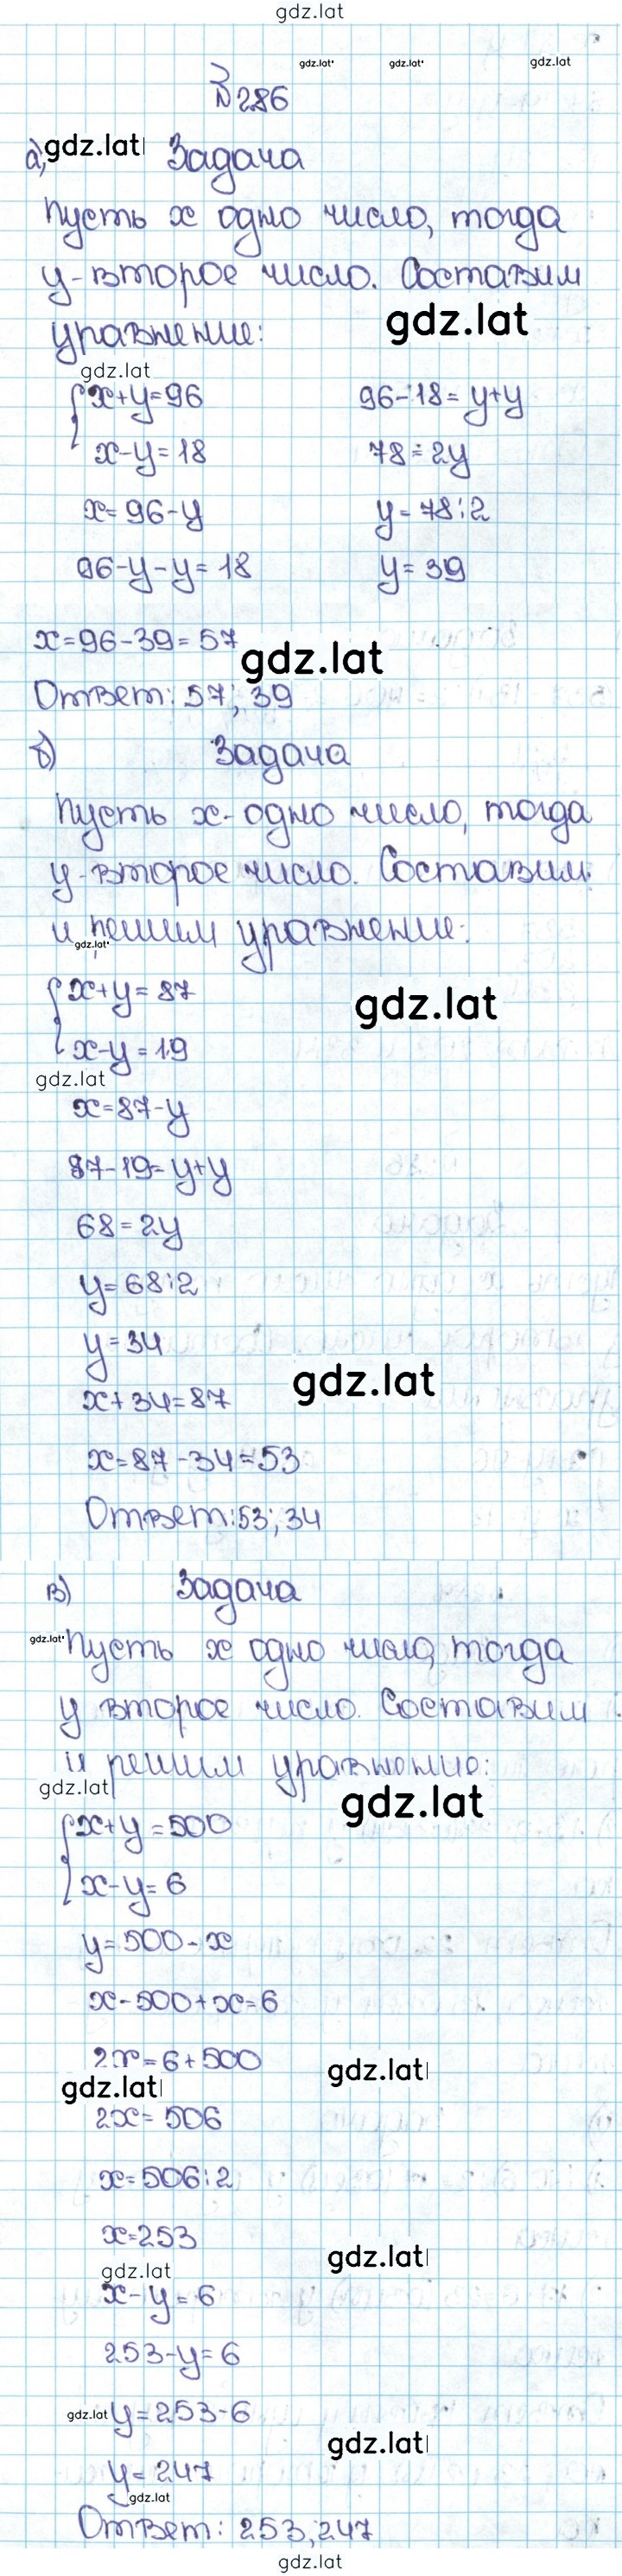 gdz.lat
gdz.lat gdz.lat gdz.lat
№286
а) gdz.lat Задача
Пусть x одно число, тогда
y-второе число. Составим
gdz.lat
уравнение:
gdz.lat
x+y=96 96-18=y+y
x-y=18 78=2y
x=96-y y=78:2
96-y-y=18 y=39
x=96-39=57
gdz.lat
Ответ: 57; 39
б) Задача
Пусть x-одно число, тогда
y-второе число. Составим
и решим уравнение:
gdz.lat
x+y=87
gdz.lat
x-y=19
gdz.lat
x=87-y
87-19=y+y
68=2y
y=68:2
y=34
gdz.lat
x+34=87
x=87-34=53
Ответ:53; 34
в) Задача
gdz.lat Пусть x одно число, тогда
y второе число. Составим
и решим уравнение:
gdz.lat
gdz.lat
x+y=500
x-y=6
y=500-x
x-500+x=6
2x=6+500
gdz.lat
gdz.lat
2x=506
x=506:2
x=253
gdz.lat
gdz.lat
x-y=6
253-y=6
gdz.lat y=253-6
gdz.lat
y=247
gdz.lat
Ответ: 253; 247
gdz.lat